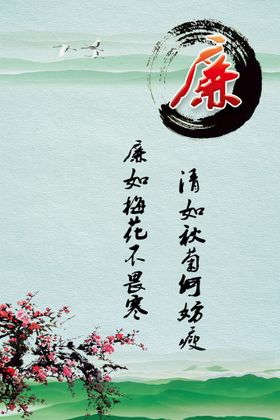 廉
清如秋菊何妨瘦
廉如梅花不畏寒